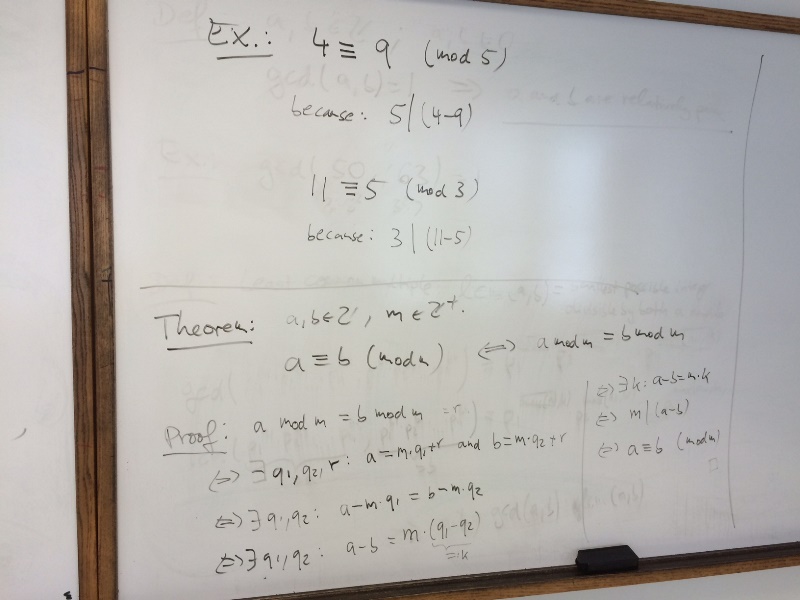 Ex.: 4 ≡ 9 (mod 5)
because: 5 | (4-9)
11 ≡ 5 (mod 3)
because: 3 | (11-5)
Theorem: a,b ∈ ℤ, m ∈ ℤ⁺.
a ≡ b (mod m) ⟺ a mod m = b mod m
Proof: a mod m = b mod m =r
⟺ ∃ q₁,q₂,r: a = m·q₁+r and b = m·q₂+r
⟺ ∃ q₁,q₂: a-m·q₁ = b-m·q₂
⟺ ∃ q₁,q₂: a-b = m·(q₁-q₂)
=:k
⟺ ∃k: a-b=m·k
⟺ m | (a-b)
⟺ a ≡ b (mod m)
□